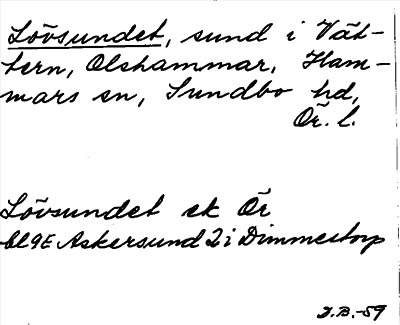 Lövsundet, sund i Vät-
tern, Olshammar, Ham-
mars sn, Sundbo hd,
Ör. l.
Lövsundet ek Ör
bl 9E Askersund 2 i Dimmestorp
J.B.-59